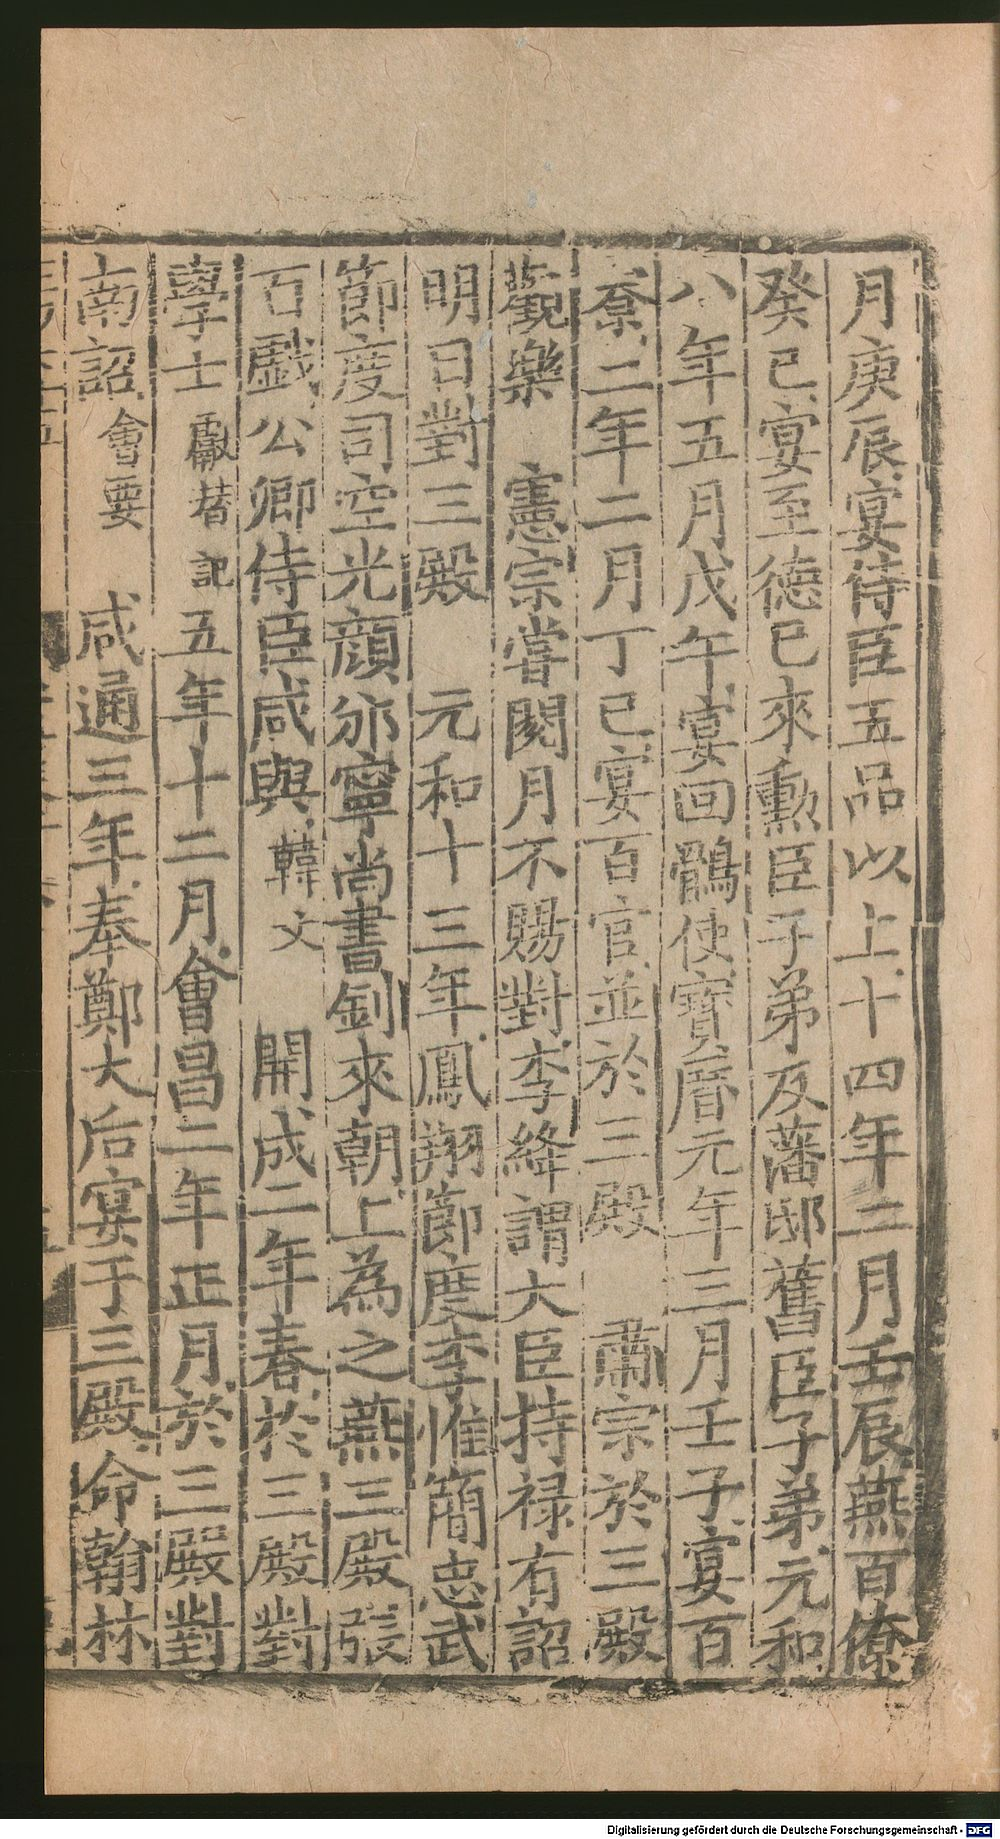 月庚辰宴待臣五品以上十四年二月壬辰燕百僚
癸巳宴至德已來勳臣子弟及藩邸舊臣子弟元和
八年五月戊午宴回鶻使寳曆元年三月壬子宴百
寮二年二月丁巳宴百官並於三殿　肅宗於三殿
觀樂　憲宗嘗閱月不賜對李絳謂大臣持禄有詔
明日對三殿　元和十三年鳳翔節度李惟簡忠武
節度司空光顔邠寧尚書釗來朝上為之燕三殿張
百戲公卿侍臣咸與韓文　開成二年春於三殿對
學士獻替記五年十二月會昌二年正月於三殿對
南詔會要　咸通三年奉鄭大后宴于三殿命翰林
Digitalisierung gefördert durch die Deutsche Forschungsgemeinschaft - DFG